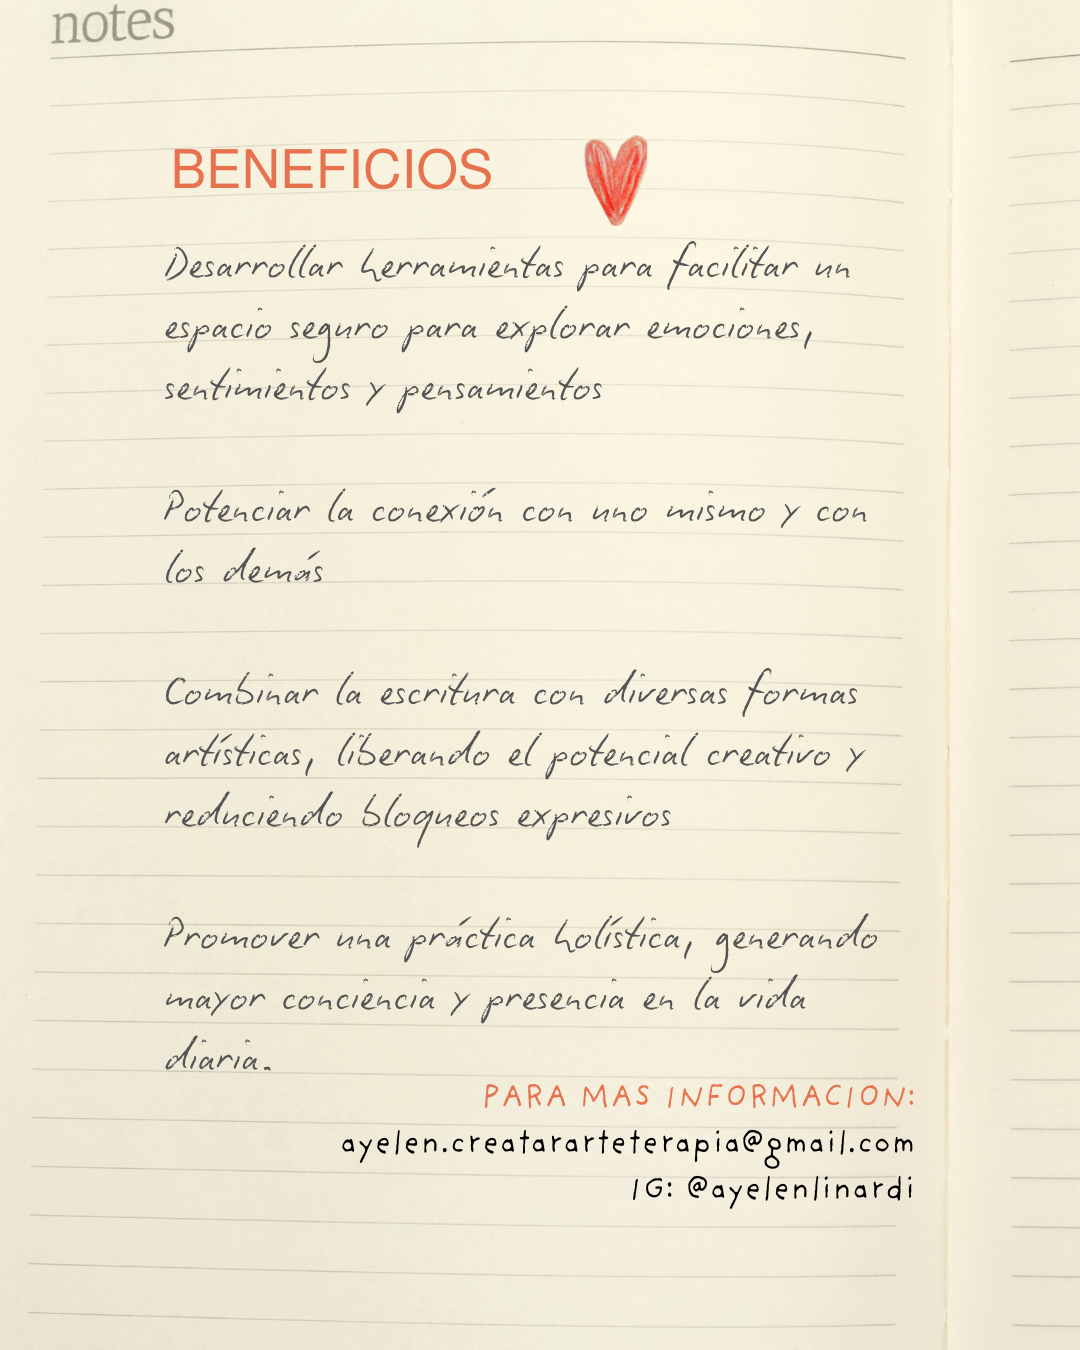 notes
BENEFICIOS
Desarrollar herramientas para facilitar un
espacio seguro para explorar emociones,
sentimientos y pensamientos
Potenciar la conexión con uno mismo y con
los demás
Combinar la escritura con diversas formas
artísticas, liberando el potencial creativo y
reduciendo bloqueos expresivos
Promover una práctica holística, generando
mayor conciencia y presencia en la vida
diaria.
PARA MAS INFORMACION:
ayelen.creatararteterapia@gmail.com
IG: @ayelenlinardi